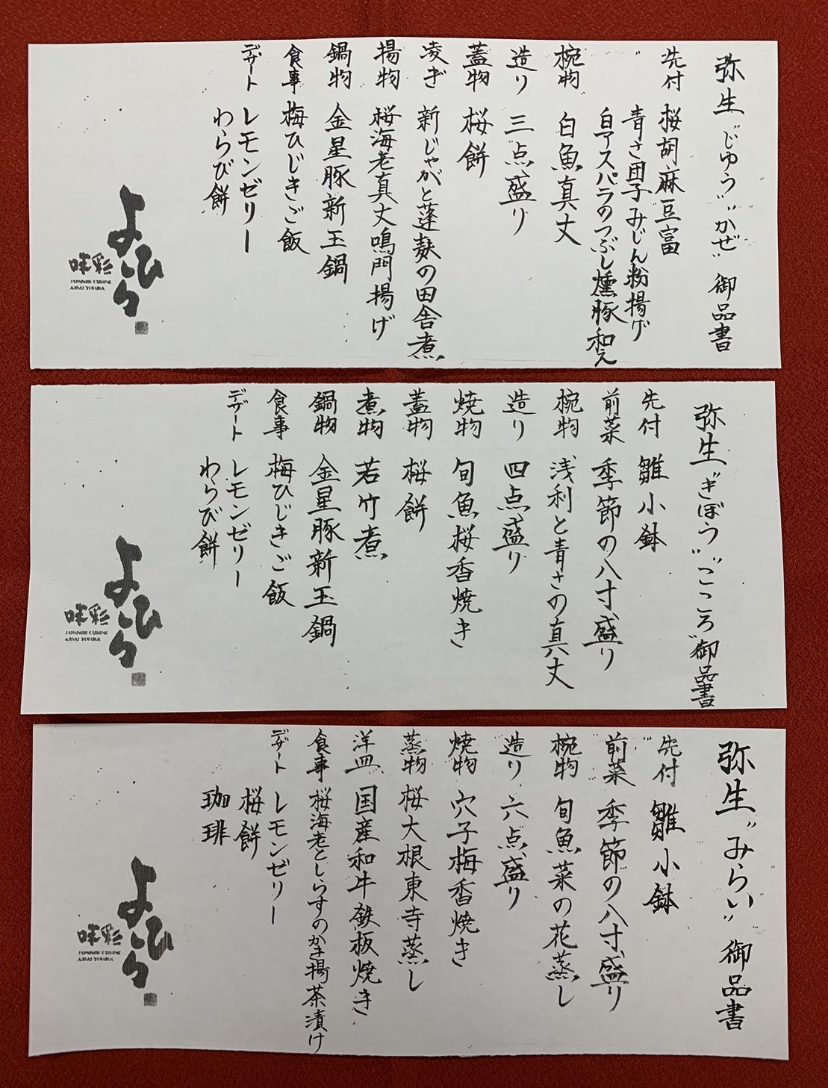 弥生“じゆう”“かぜ”御品書
先付 桜胡麻豆富
青さ団子みじん粉揚げ
白アスパラのつぶし燻豚和え
椀物 白魚真丈
造り 三点盛り
蓋物 桜餅
凌ぎ 新じゃがと蓬麩の田舎煮
揚物 桜海老真丈鳴門揚げ
鍋物 金星豚新玉鍋
食事 梅ひじきご飯
デザート レモンゼリー
わらび餅
よひら
味彩
JAPANESE CUISINE
弥生“きぼう”“こころ”御品書
先付 雛小鉢
前菜 季節の八寸盛り
椀物 浅利と青さの真丈
造り 四点盛り
焼物 旬魚桜香焼き
蓋物 桜餅
煮物 若竹煮
鍋物 金星豚新玉鍋
食事 梅ひじきご飯
デザート レモンゼリー
わらび餅
よひら
味彩
JAPANESE CUISINE
弥生“みらい”御品書
先付 雛小鉢
前菜 季節の八寸盛り
椀物 旬魚菜の花蒸し
造り 六点盛り
焼物 穴子梅香焼き
蒸物 桜大根東寺蒸し
洋皿 国産和牛鉄板焼き
食事 桜海老としらすのかき揚茶漬け
デザート レモンゼリー
桜餅
珈琲
よひら
味彩
JAPANESE CUISINE